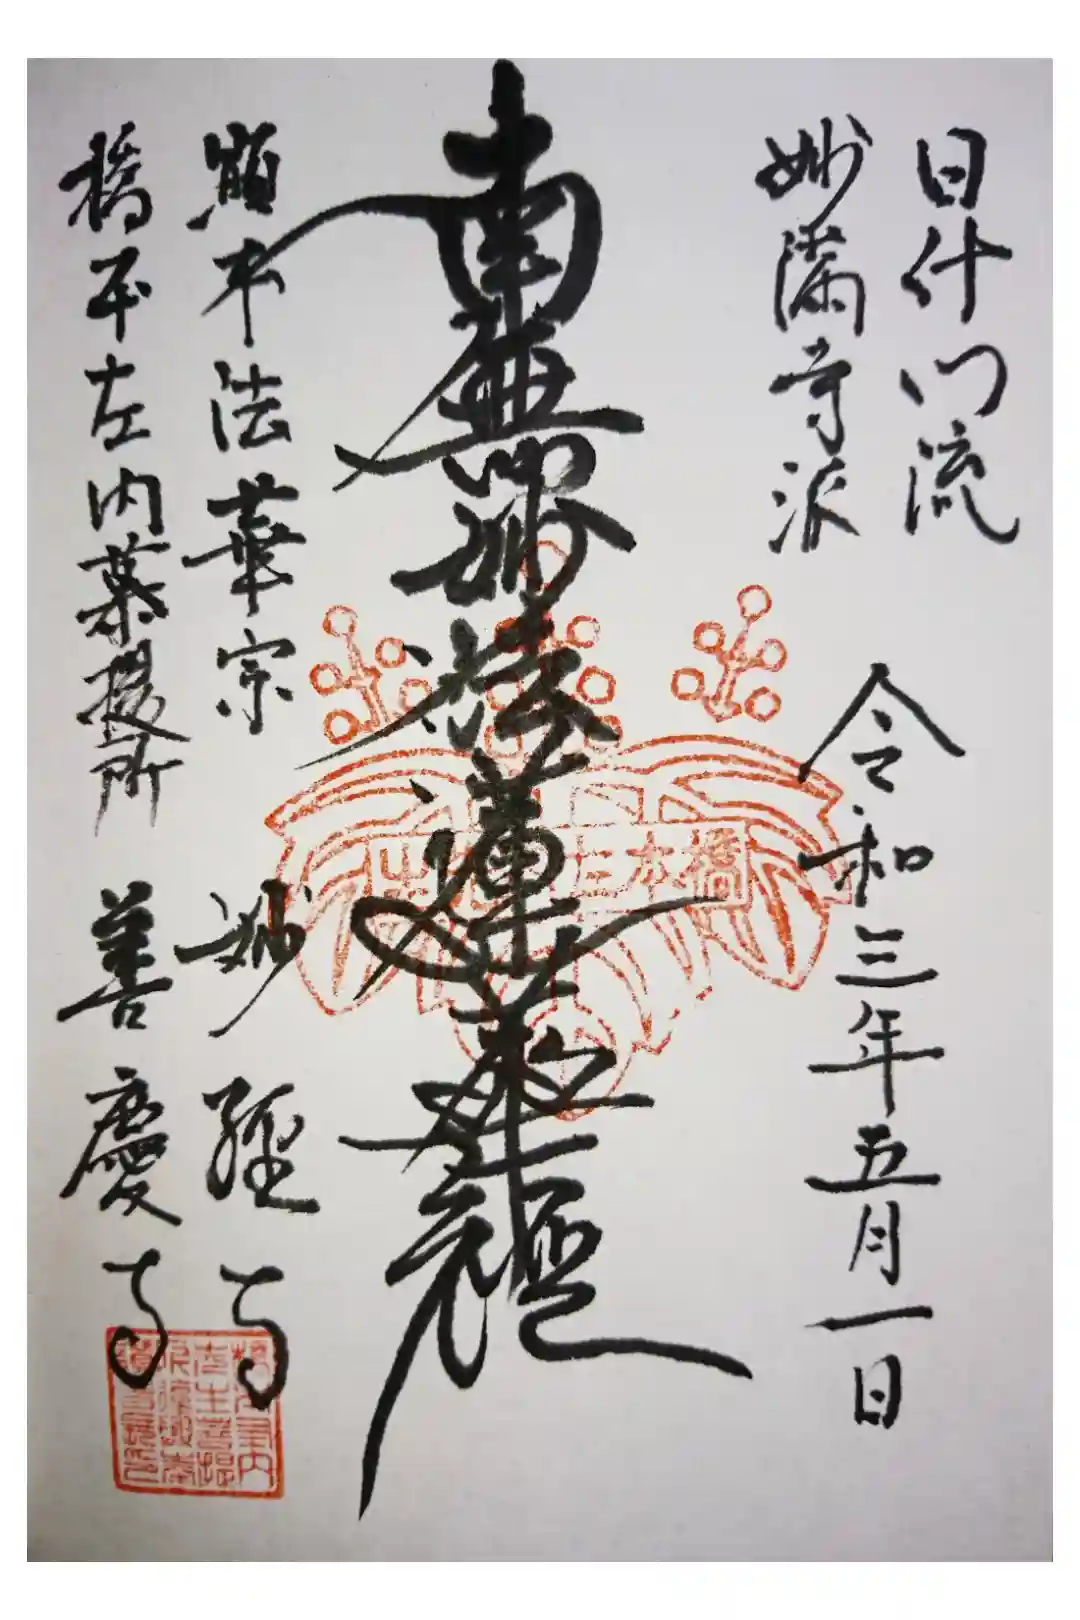 日什門流
妙満寺派
令和三年五月一日
南無妙法蓮華経
日本橋
顕本法華宗
妙經寺
橋本左内菩提所
善慶寺